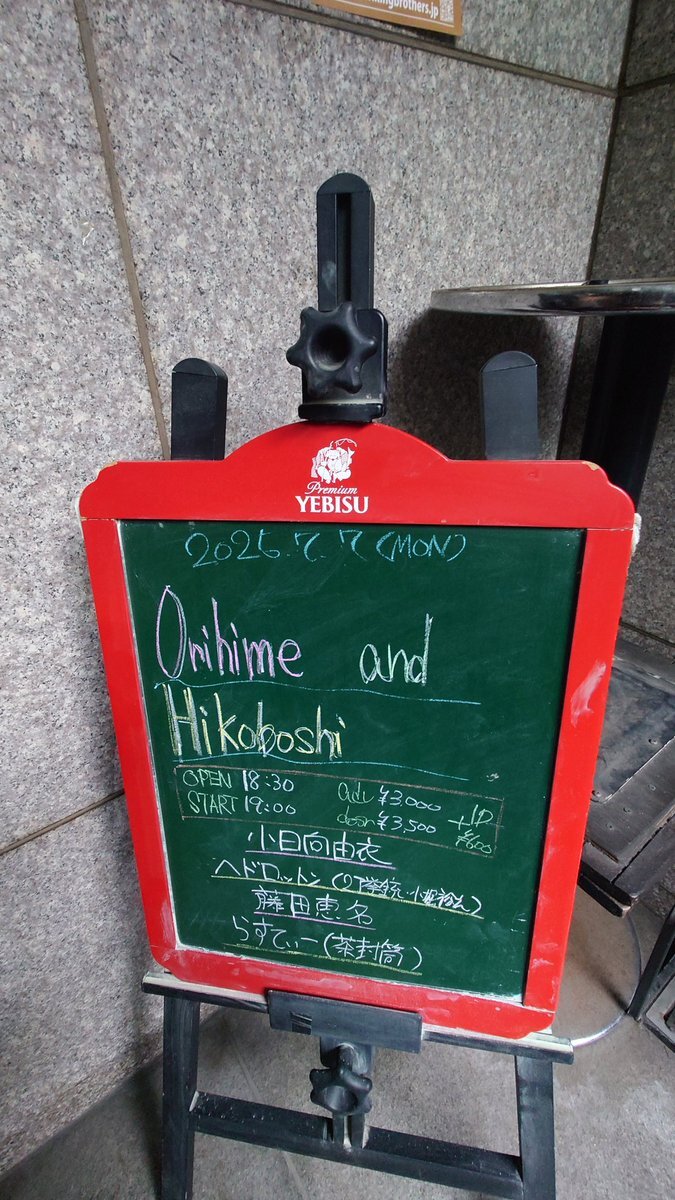 ngbrothers.jp
Premium
YEBISU
2025.7.7(MON)
Orihime and
Hikoboshi
OPEN 18:30
START 19:00
adv ¥3,000
door ¥3,500
+1D
¥600
小日向由衣
ヘドロットン(
藤田恵名
らすてぃー(茶封筒)